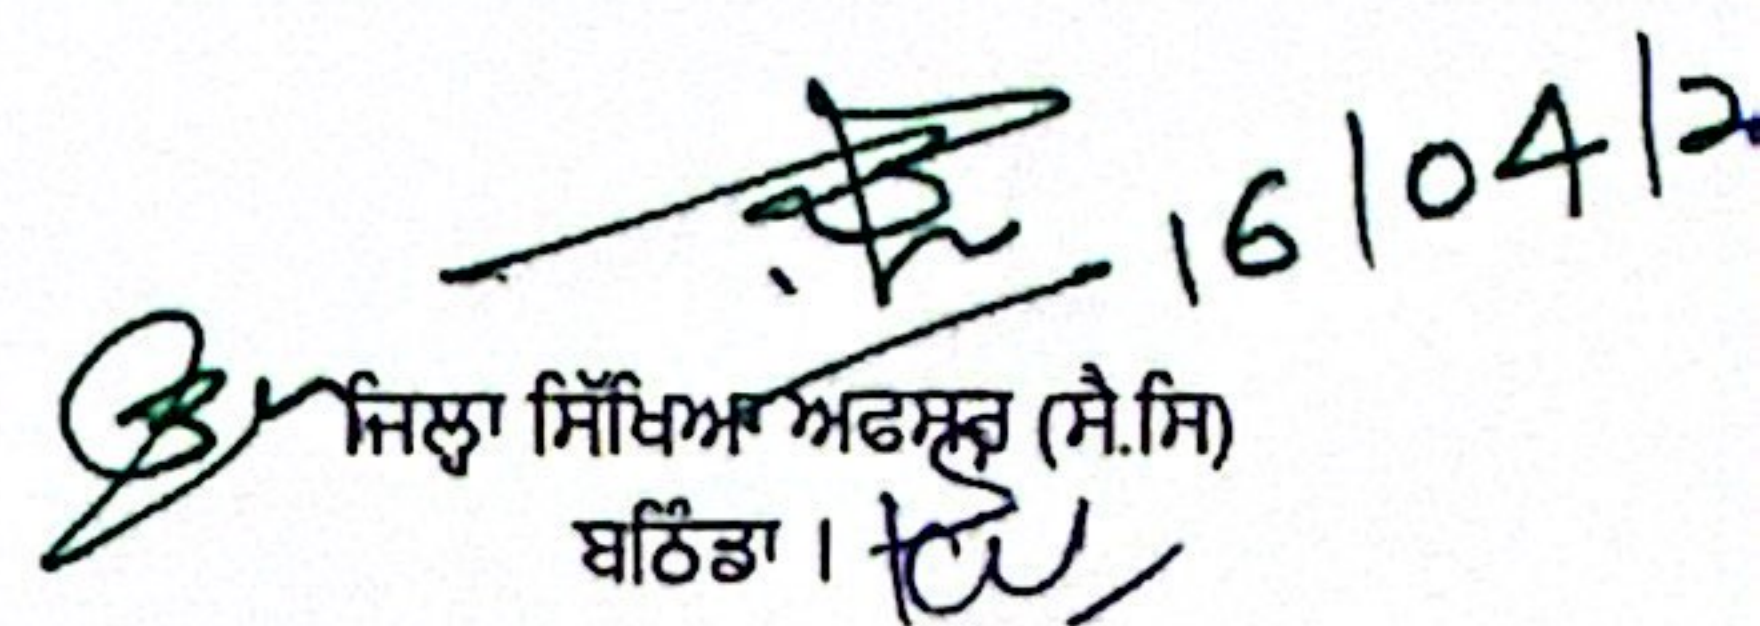 16/04/2
ਜਿਲ੍ਹਾ ਸਿੱਖਿਆ ਅਫਸਰ (ਸੈ.ਸਿ)
ਬਠਿੰਡਾ ।